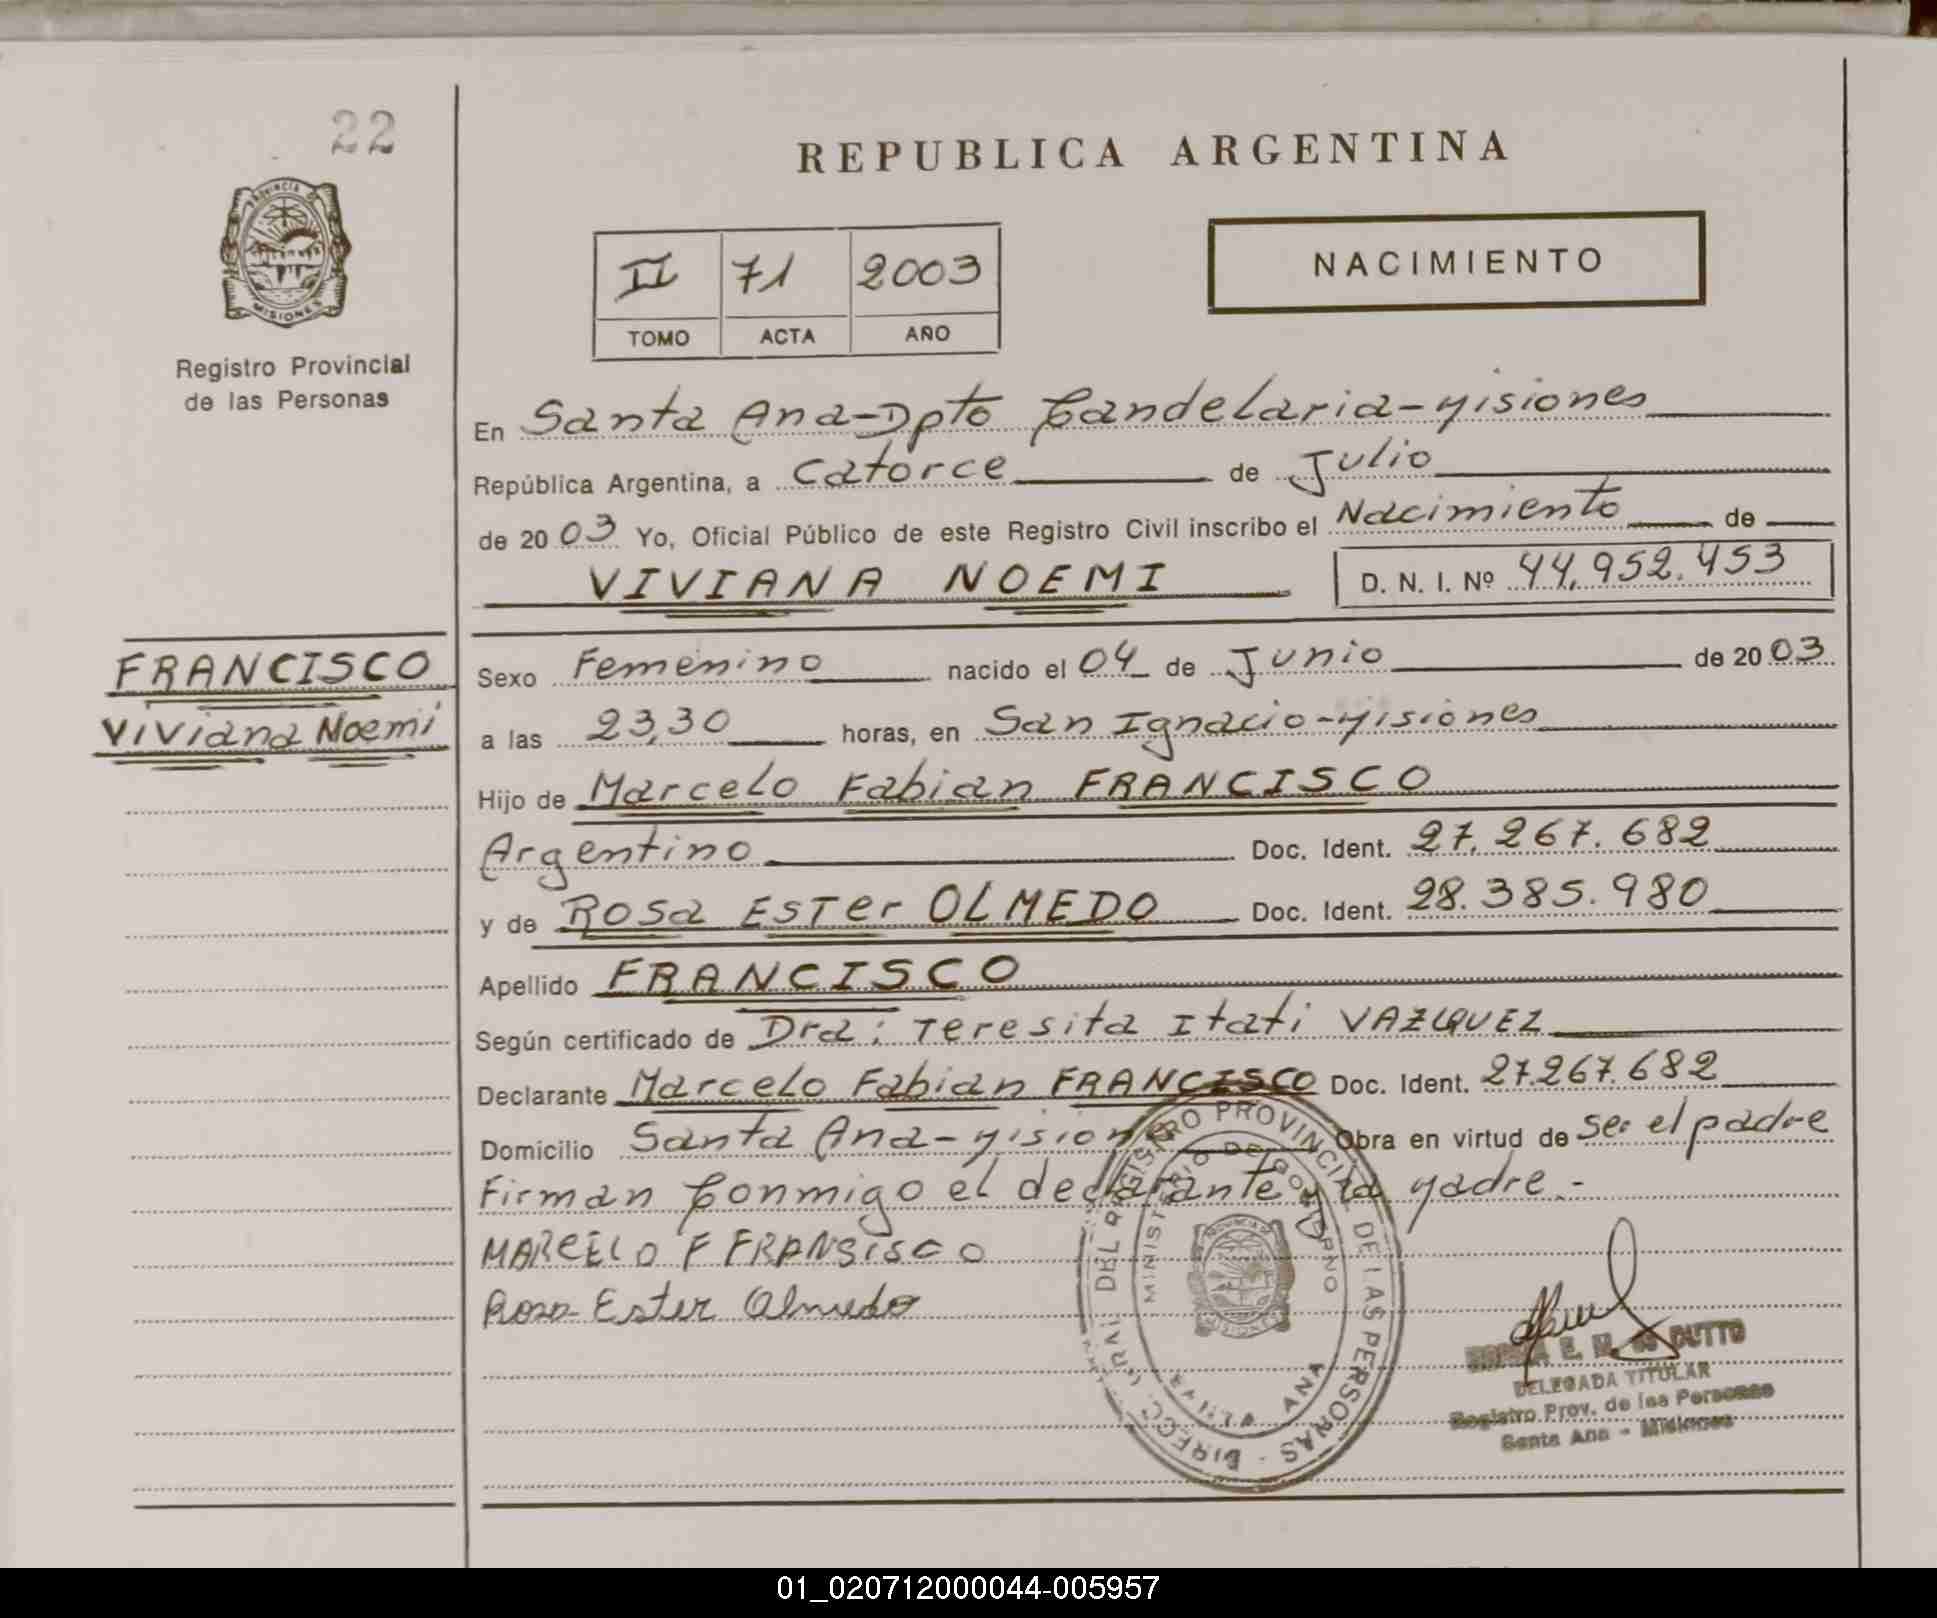 22
PROVINCIA DE
MISIONES
Registro Provincial
de las Personas
REPUBLICA ARGENTINA
II 71 2003
TOMO ACTA AÑO
NACIMIENTO
En Santa Ana-Dpto Candelaria-Misiones
República Argentina, a Catorce de Julio
de 2003 Yo, Oficial Público de este Registro Civil inscribo el Nacimiento de
VIVIANA NOEMI D. N. I. Nº 44.952.453
FRANCISCO
Viviana Noemi
Sexo Femenino nacido el 04 de Junio de 2003
a las 23,30 horas, en San Ignacio-Misiones
Hijo de Marcelo Fabian FRANCISCO
Argentino Doc. Ident. 27.267.682
y de Rosa Ester OLMEDO Doc. Ident. 28.385.980
Apellido FRANCISCO
Según certificado de Dra: Teresita Itati VAZQUEZ
Declarante Marcelo Fabian FRANCISCO Doc. Ident. 27.267.682
Domicilio Santa Ana-Misiones Obra en virtud de ser el padre
Firman Conmigo el declarante y la Madre.-
MARCELO F FRANSISCO
Rosa Ester Olmedo
REGISTRO PROVINCIAL DE LAS PERSONAS - DIRECC. GRAL DEL
MINISTERIO DE GOBIERNO
ANA
MISIONES
E. M. DE DUTTO
DELEGADA TITULAR
Registro Prov. de las Personas
Santa Ana - Misiones
01_020712000044-005957